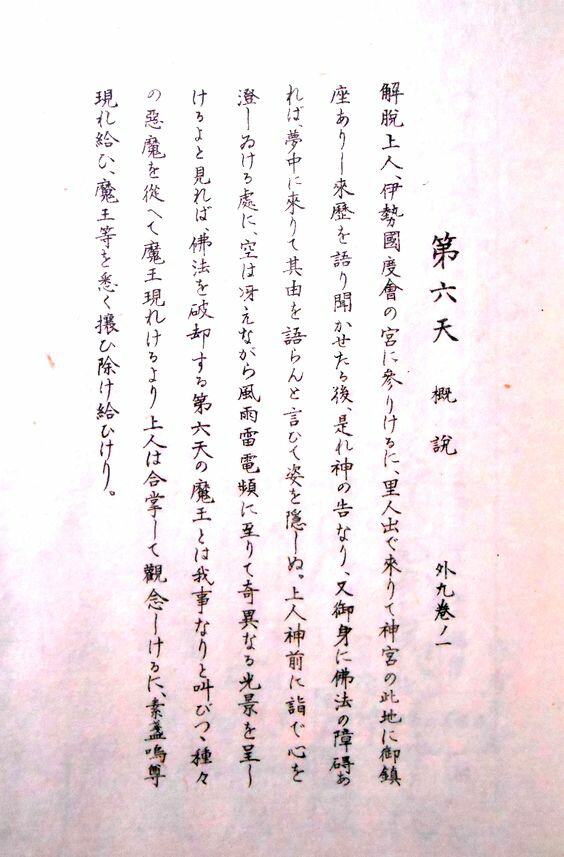 第六天 概説 外九巻ノ一
解脱上人、伊勢國度會の宮に参りけるに、里人出で來りて神宮の此地に御鎮
座ありし來歴を語り聞かせたる後、是れ神の告なり、又御身に佛法の障碍あ
れば、夢中に來りて其由を語らんと言ひて姿を隠しぬ。上人神前に詣で心を
澄しゐける處に、空は冴えながら風雨雷電頻に至りて奇異なる光景を呈し
けるよと見れば、佛法を破却する第六天の魔王とは我事なりと叫びつゝ種々
の惡魔を從へて魔王現れけるより上人は合掌して觀念しけるに、素盞嗚尊
現れ給ひ、魔王等を悉く攘ひ除け給ひけり。